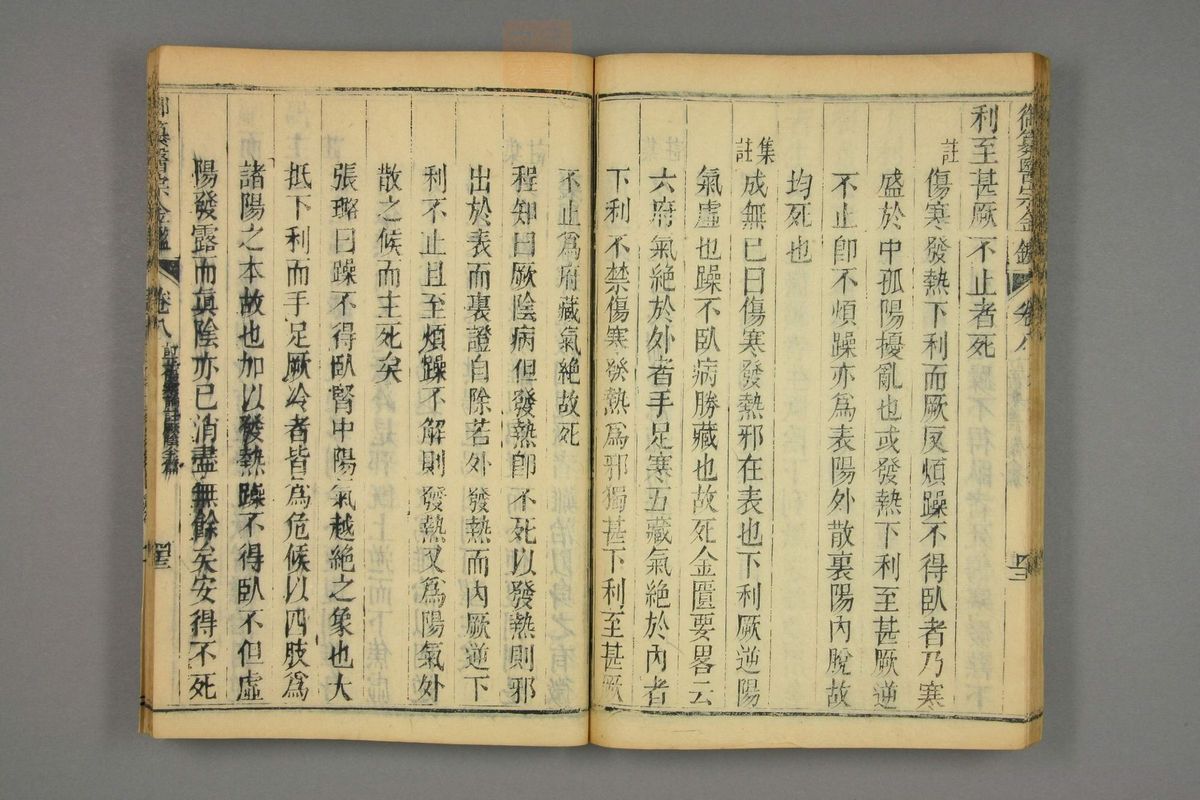 御纂醫宗金鑑 卷八
利至甚厥不止者死
註 傷寒發熱下利而厥反煩躁不得臥者乃寒
盛於中孤陽擾亂也或發熱下利至甚厥逆
不止卽不煩躁亦爲表陽外散裏陽內脫故
均死也
集註 成無已曰傷寒發熱邪在表也下利厥逆陽
氣虛也躁不臥病勝藏也故死金匱要畧云
六府氣絶於外者手足寒五藏氣絶於內者
下利不禁傷寒發熱爲邪獨甚下利至甚厥
不止爲府藏氣絶故死
程知曰厥陰病但發熱卽不死以發熱則邪
出於表而裏證自除若外發熱而內厥逆下
利不止且至煩躁不解則發熱又爲陽氣外
散之候而主死矣
張璐曰躁不得臥腎中陽氣越絶之象也大
抵下利而手足厥冷者皆爲危候以四肢爲
諸陽之本故也加以發熱躁不得臥不但虛
陽發露而眞陰亦已消盡無餘矣安得不死
御纂醫宗金鑑 卷八